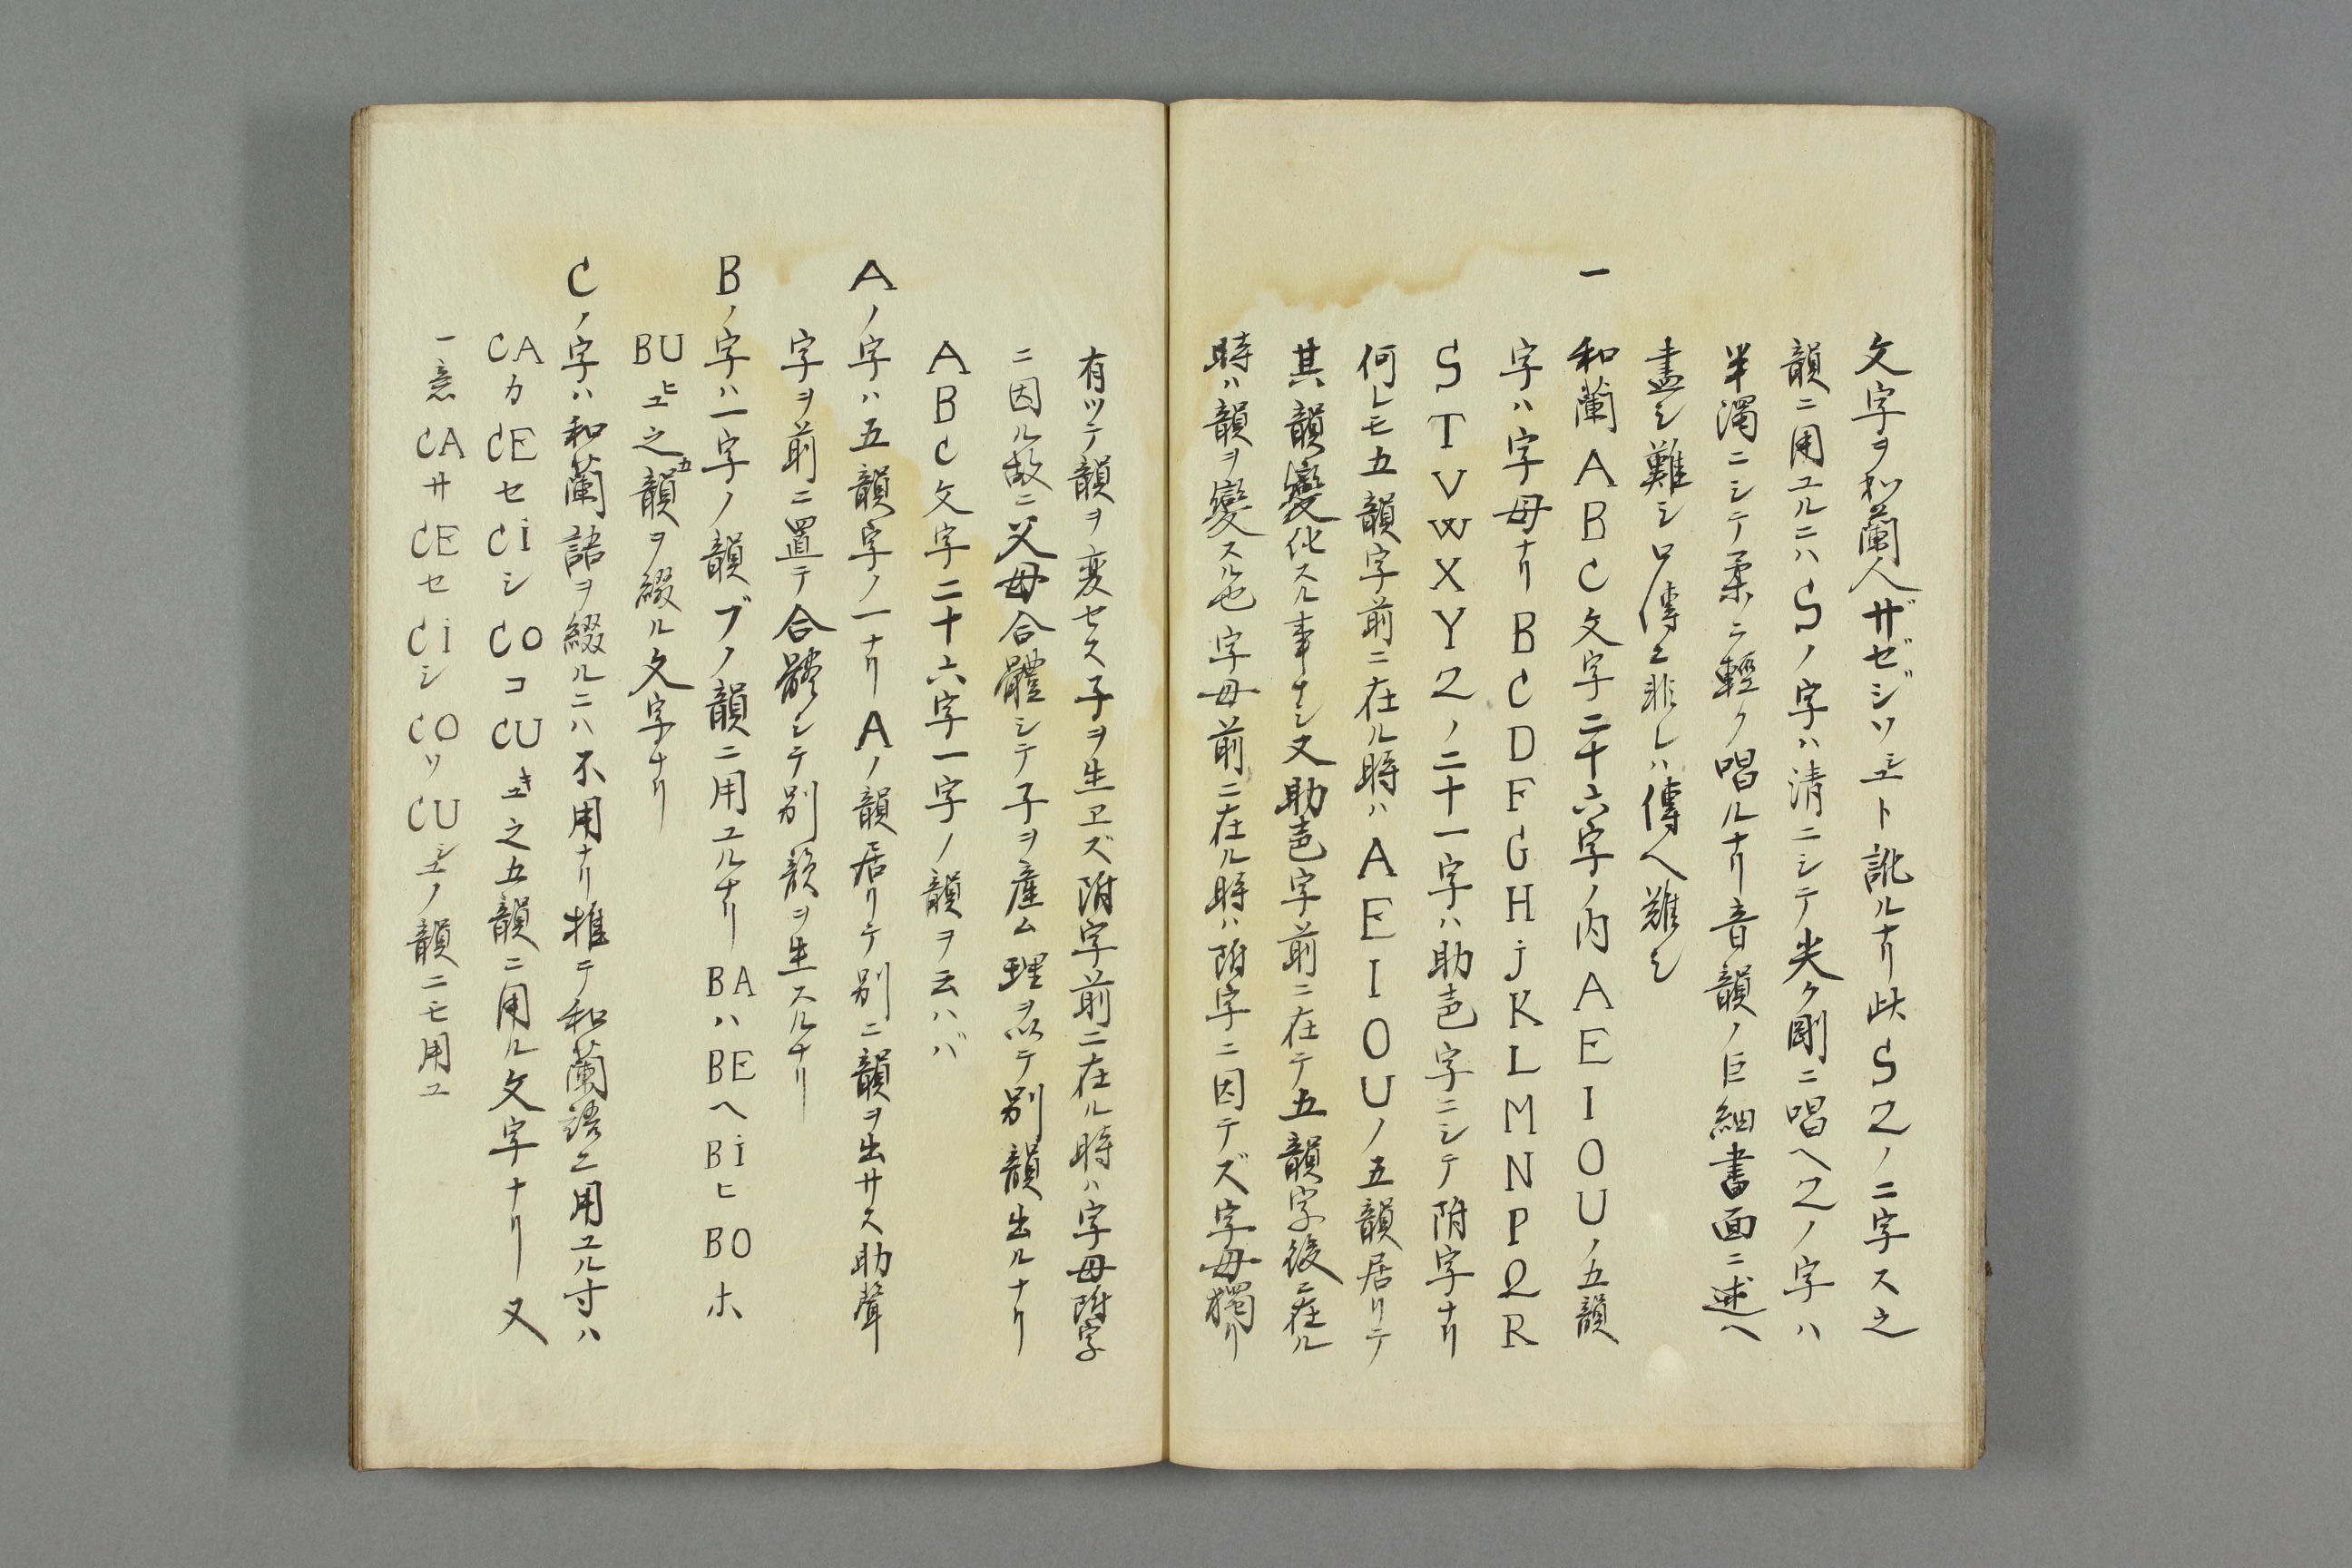 文字ヲ和蘭人ザゼジソシュト訛ルナリ此SZノ二字ス之
韻ニ用ユルニハSノ字ハ清ニシテ尖ク剛ニ唱ヘZノ字ハ
半濁ニシテ柔ニ輕ク唱ルナリ音韻ノ巨細書面ニ述ヘ
盡シ難シ口傳ニ非レハ傳ヘ難シ
一和蘭ABC文字二十六字ノ内AEIOUノ五韻
字ハ字母ナリBCDFGHjKLMNPQR
STVWXYZノ二十一字ハ助声字ニシテ附字ナリ
何レモ五韻字前ニ在ル時ハAEIOUノ五韻居リテ
其韻變化スル事ナシ又助声字前ニ在テ五韻字後ニ在ル
時ハ韻ヲ變スル也字母前ニ在ル時ハ附字ニ因テズ字母獨リ
有ツテ韻ヲ変セス子ヲ生ヱズ附字前ニ在ル時ハ字母附字
ニ因ル故ニ父母合體シテ子ヲ産ム理ヲ以テ別韻出ルナリ
ABC文字二十六字一字ノ韻ヲ云ハバ
Aノ字ハ五韻字ノ一ナリAノ韻居リテ別ニ韻ヲ出サス助聲
字ヲ前ニ置テ合體シテ別韻ヲ生スルナリ
Bノ字ハ一字ノ韻ブノ韻ニ用ユルナリBAハBEヘBiヒBOホ
BUヒュ之五韻ヲ綴ル文字ナリ
Cノ字ハ和蘭語ヲ綴ルニハ不用ナリ推テ和蘭語ニ用ユル寸ハ
CAカCEセCiシCOコCUキュ之五韻ニ用ル文字ナリ又
一意CAサCEセCiシCOソCUシュノ韻ニモ用ユ